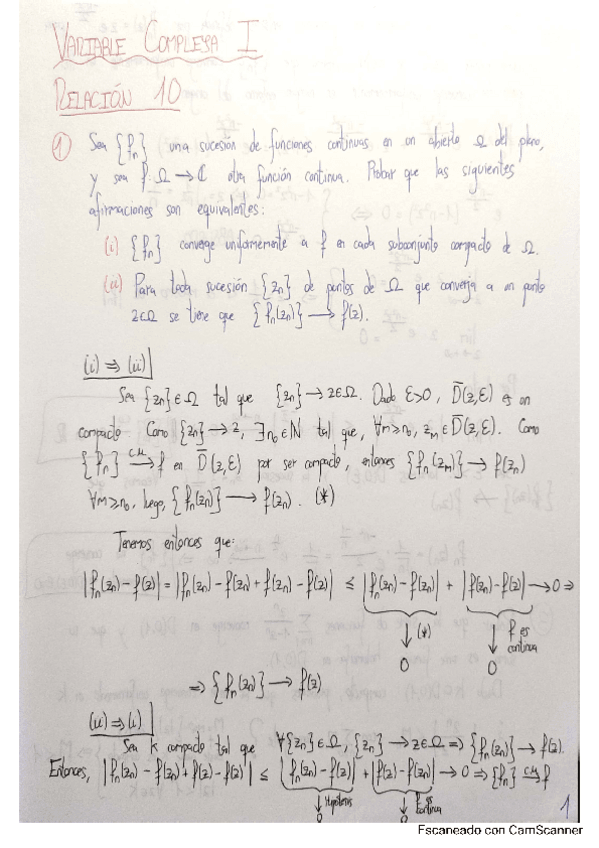 VARIABLE COMPLEJA I
RELACIÓN 10
① Sea {fn} una sucesión de funciones continuas en un abierto Ω del plano,
y sea f: Ω → ℂ otra función continua. Probar que las siguientes
afirmaciones son equivalentes:
(i) {fn} converge uniformemente a f en cada subconjunto compacto de Ω.
(ii) Para toda sucesión {zn} de puntos de Ω que converja a un punto
z∈Ω se tiene que {fn(zn)} → f(z).
(i) ⇒ (ii)
Sea {zn}∈Ω tal que {zn} → z∈Ω. Dado ε>0, D̄(z,ε) es un
compacto. Como {zn} → z, ∃n₀∈ℕ tal que, ∀m≥n₀, zm∈D̄(z,ε). Como
{fn} →c.u. f en D̄(z,ε) por ser compacto, entonces {fn(zm)} → f(zn)
∀m≥n₀, luego, {fn(zn)} → f(zn). (*)
Tenemos entonces que:
|fn(zn) − f(z)| = |fn(zn) − f(zn) + f(zn) − f(z)| ≤ |fn(zn) − f(zn)| + |f(zn) − f(z)| → 0 ⇒
↓ (*) ↓ f es continua
0 0
⇒ {fn(zn)} → f(z)
(ii) ⇒ (i)
Sea k compacto tal que ∀{zn}∈Ω, {zn} → z∈Ω ⇒ {fn(zn)} → f(z).
Entonces, |fn(zn) − f(zn) + f(z) − f(z)| ≤ |fn(zn) − f(zn)| + |f(zn) − f(z)| → 0 ⇒ {fn} →c.u. f
↓ Hipótesis ↓ f es continua
0 0
1
Escaneado con CamScanner